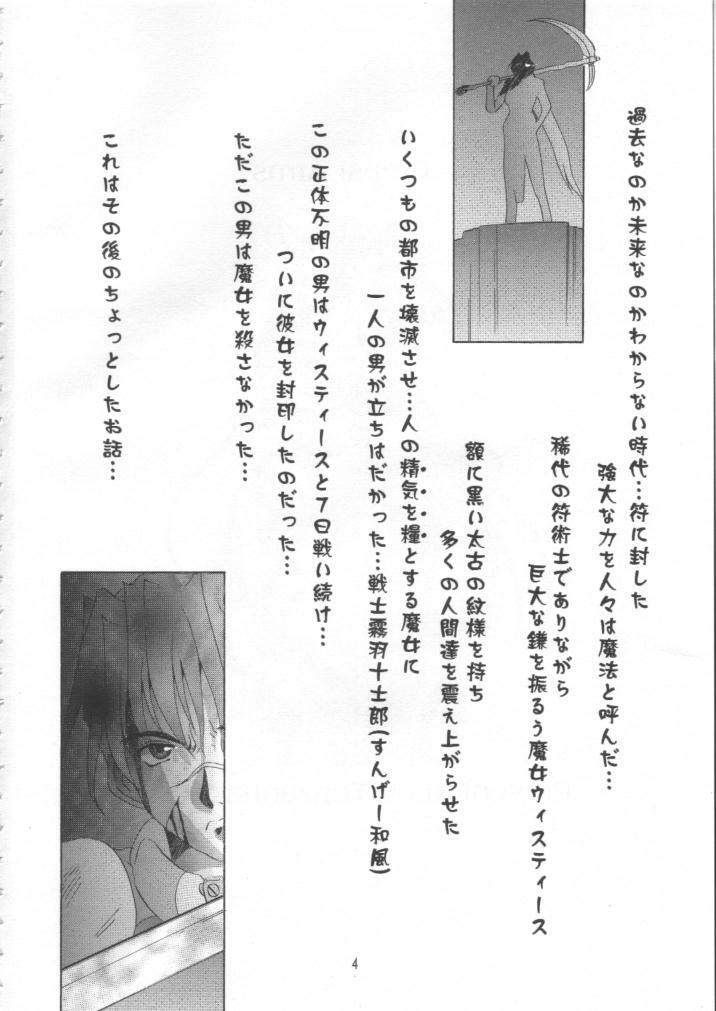 過去なのか未来なのかわからない時代…符に封した
強大な力を人々は魔法と呼んだ…
稀代の符術士でありながら
巨大な鎌を振るう魔女ウィスティース
額に黒い太古の紋様を持ち
多くの人間達を震え上がらせた
いくつもの都市を壊滅させ…人の精気を糧とする魔女に
一人の男が立ちはだかった…戦士霧羽十士郎(すんげー和風)
この正体不明の男はウィスティースと7日戦い続け…
ついに彼女を封印したのだった…
ただこの男は魔女を殺さなかった…
これはその後のちょっとしたお話…
4